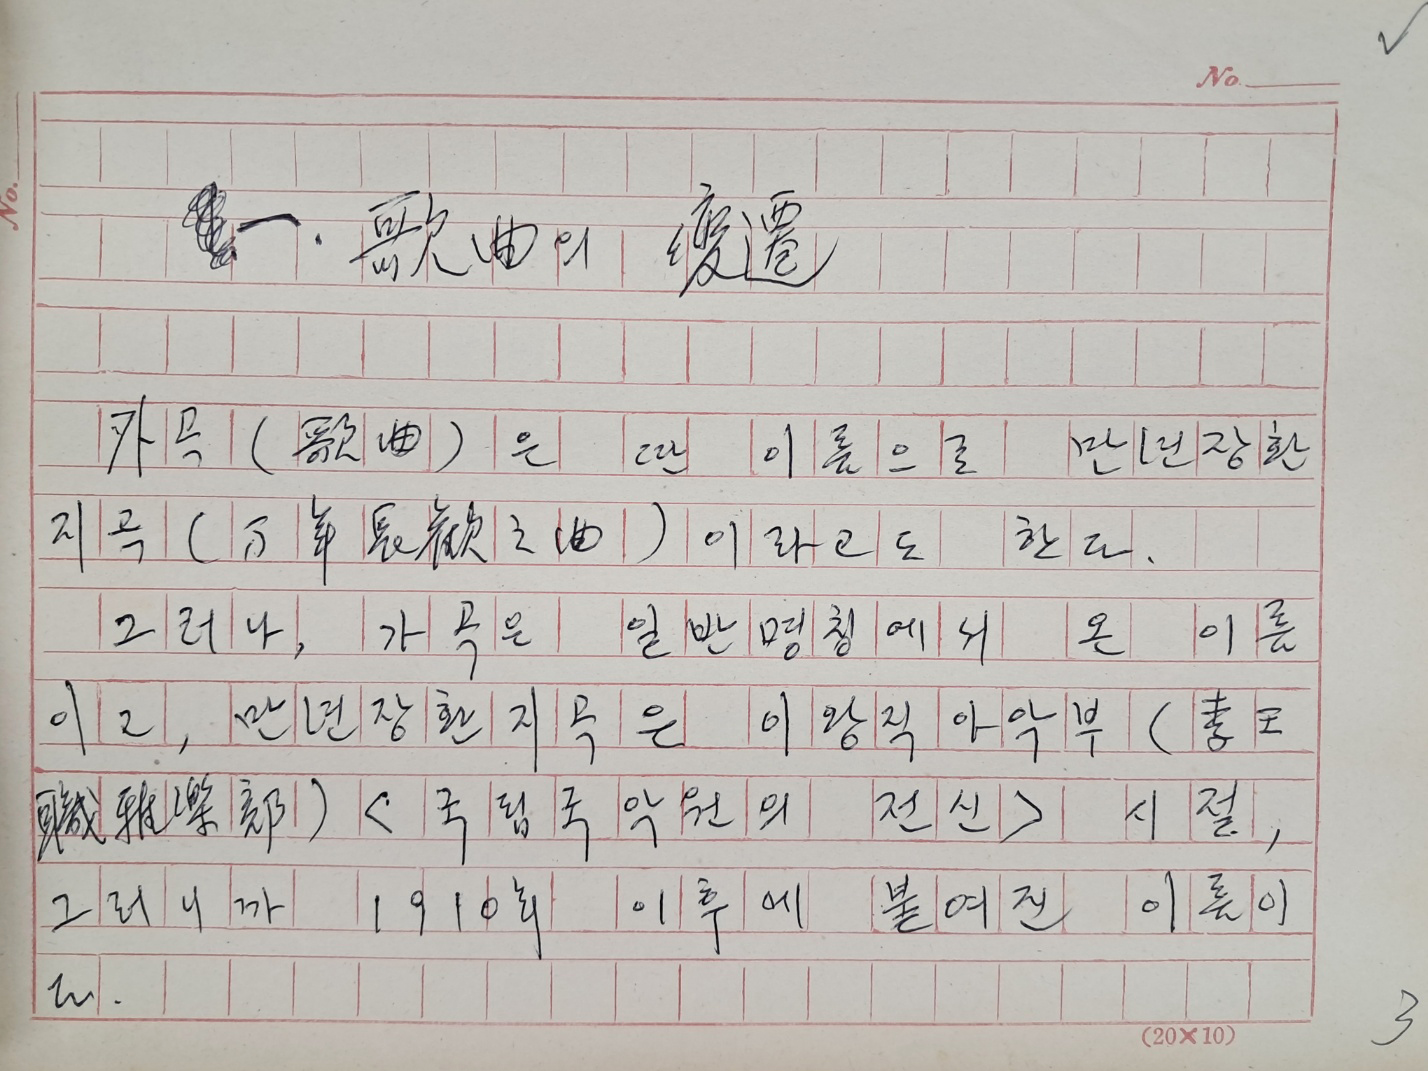 No.
No.
一. 歌曲의 變遷
가곡(歌曲)은 딴 이름으로 만년장환
지곡(万年長歡之曲)이라고도 한다.
그러나, 가곡은 일반명칭에서 온 이름
이고, 만년장환지곡은 이왕직 아악부(李王
職雅樂部)<국립국악원의 전신> 시절,
그러니까 1910年 이후에 붙여진 이름이
다.
(20×10)
3